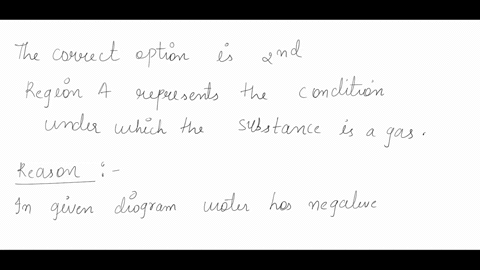 The correct option is 2nd
Region A represents the condition
under which the substance is a gas.
Reason :-
In given diagram water has negative